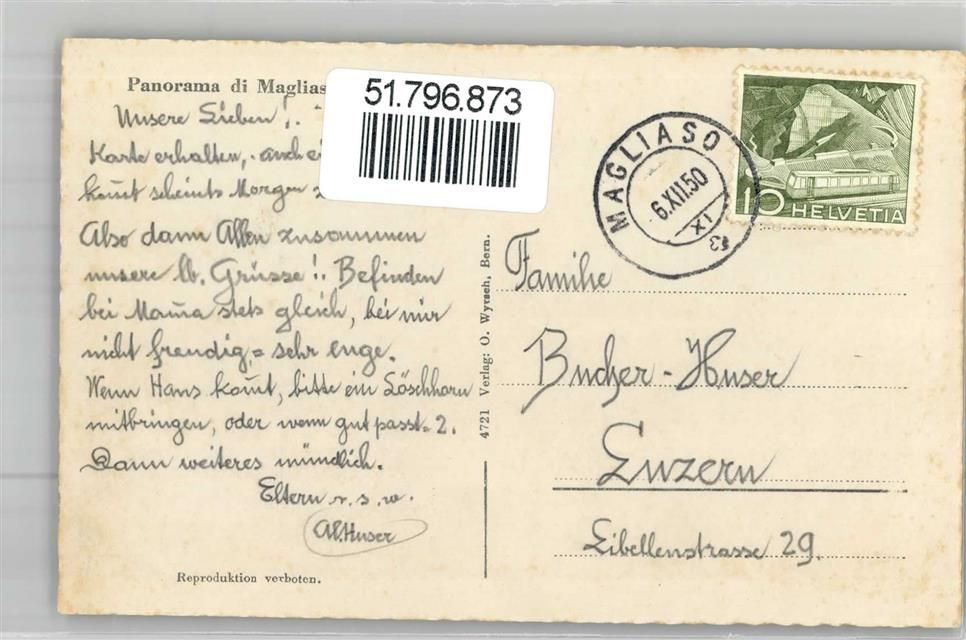 Panorama di Maglias
51.796.873
Unsere Lieben!
Karte erhalten, auch
komt scheints Morgen
Also dann Allen zusammen
unsere lb. Grüsse! Befinden
bei Mama stets gleich, bei mir
nicht freudig, = sehr enge.
Wenn Hans komt, bitte ein Löschhorn
mitbringen, oder wenn gut passt = 2.
Dann weiteres mündlich.
Eltern u. s. w.
Al. Huser
Reproduktion verboten.
4721 Verlag: O. Wyrsch, Bern.
MAGLIASO
6.XII.50
XI
10 HELVETIA
Familie
Bucher-Huser
Luzern
Libellenstrasse 29.